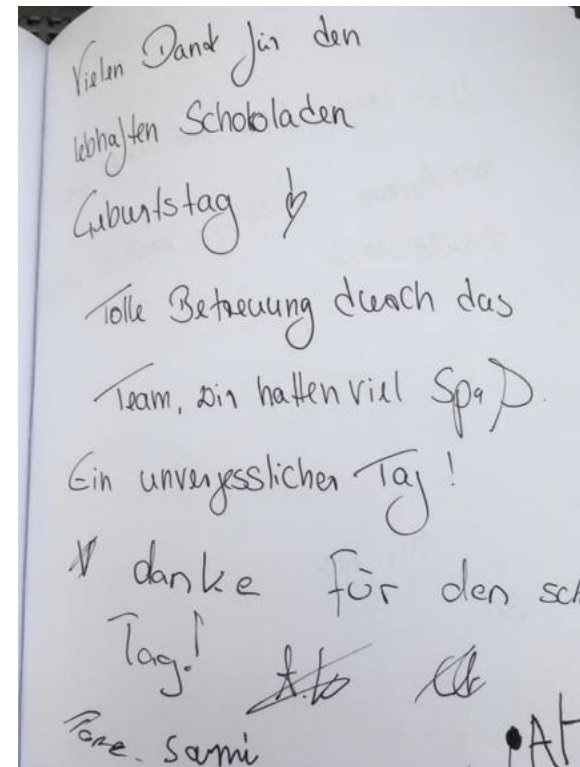 Vielen Dank für den
lebhaften Schokoladen
Geburtstag
Tolle Betreuung durch das
Team, wir hatten viel Spaß.
Ein unvergesslicher Tag!
danke für den sch
Tag!
Sami